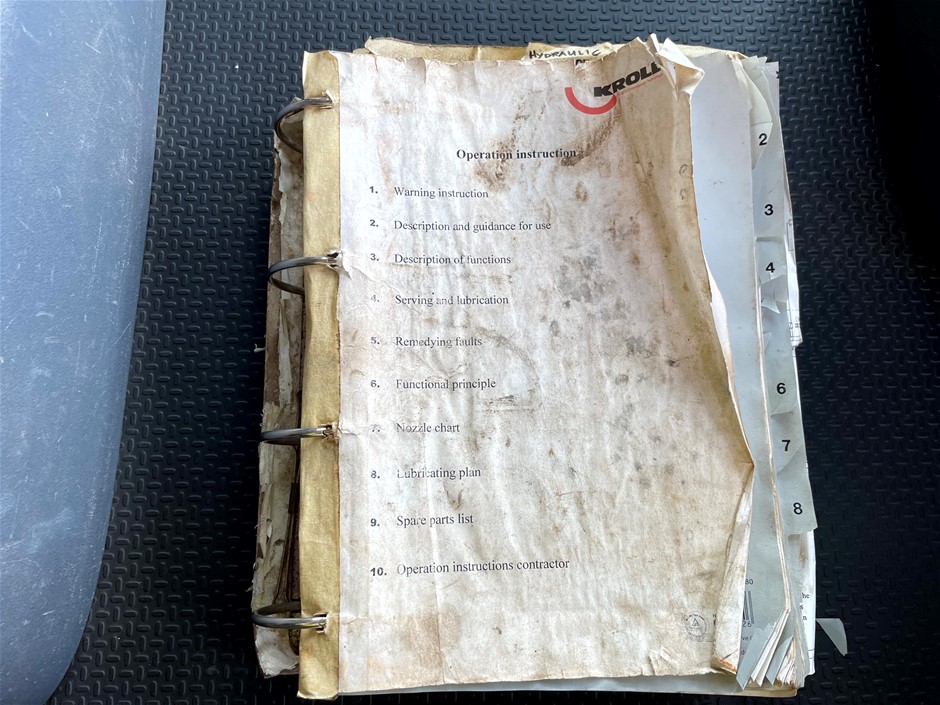 HYDRAULIC
KROLL
Operation instruction
1. Warning instruction
2. Description and guidance for use
3. Description of functions
4. Serving and lubrication
5. Remedying faults
6. Functional principle
7. Nozzle chart
8. Lubricating plan
9. Spare parts list
10. Operation instructions contractor
2
3
4
6
7
8
80
he
s
n
26